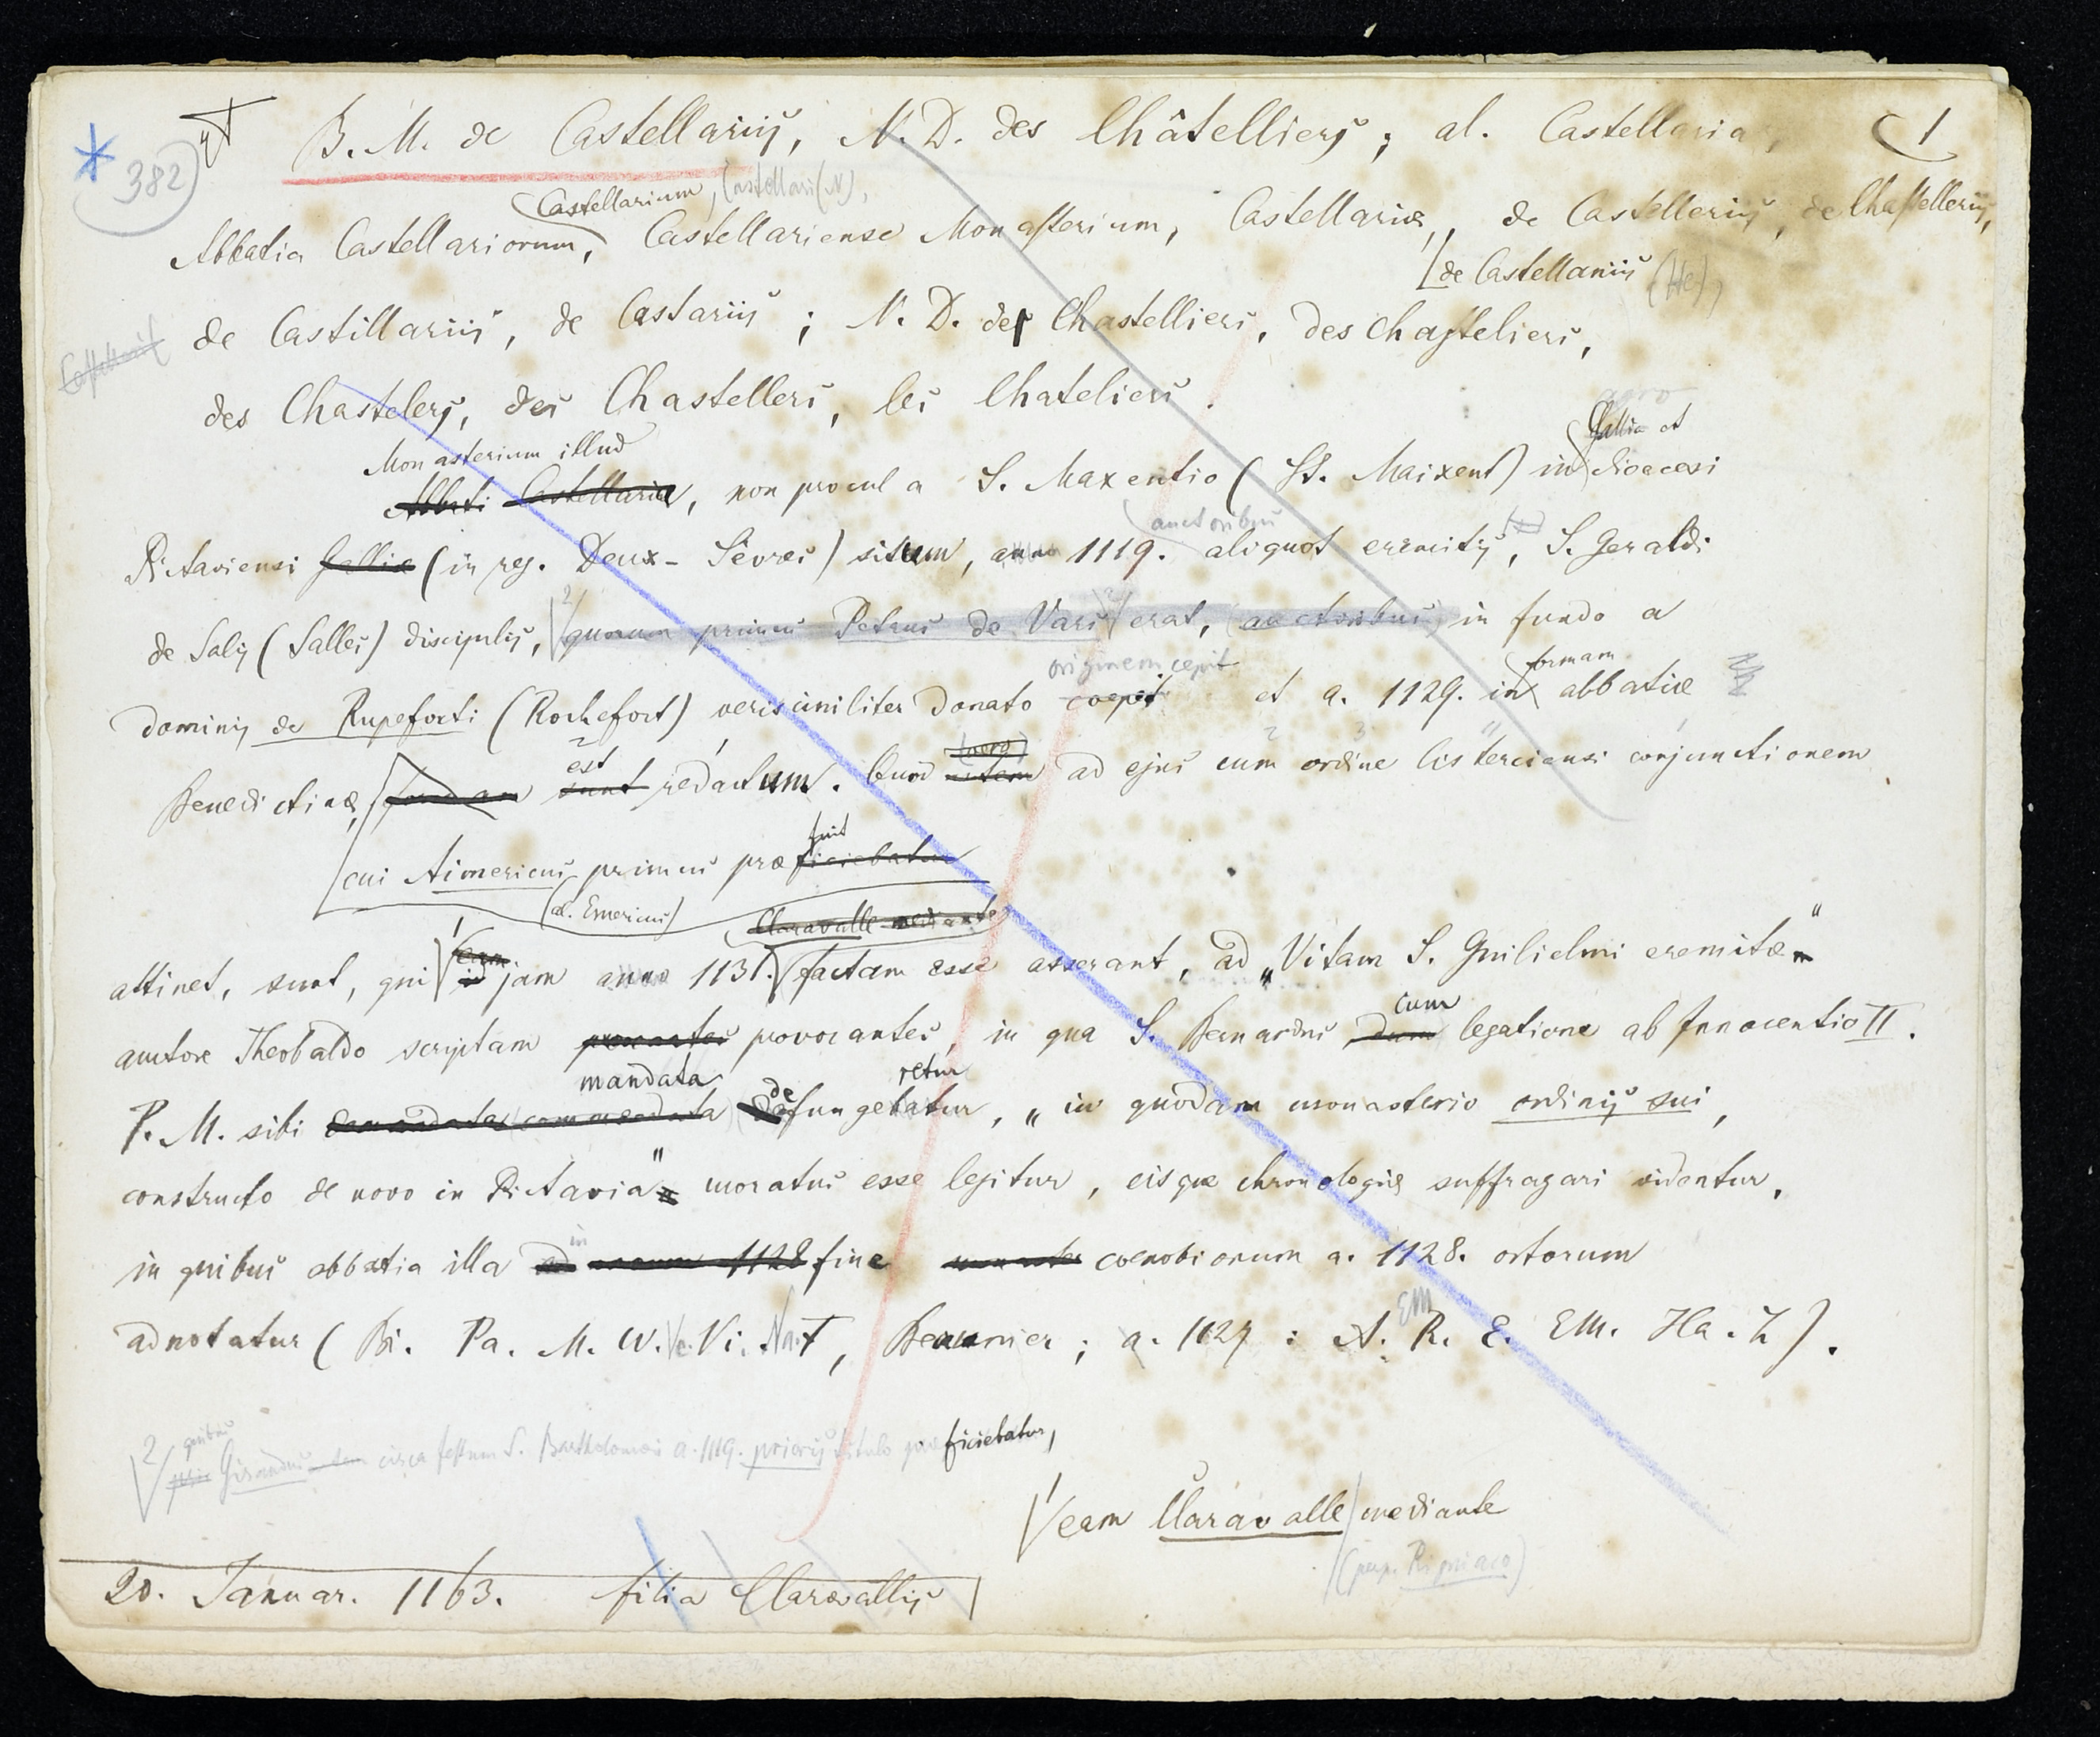 * 382 B. M. de Castellariis, N. D. des Châtelliers; al. Castellaria, 1
Castellarium, Castellari (N),
Abbatia Castellariorum, Castellariense Monasterium, Castellariæ, de Castelleriis, de Chastelleriis,
de Castellaniis (He),
de Castillariis, de Castariis; N. D. des Chastelliers, des Chasteliers,
des Chastelers, des Chastellers, les Chateliers.
Monasterium illud agro Gallia et
Abbati Castellariæ, non procul a S. Maxentio (St. Maixent) in dioecesi
auctoribus
Pictaviensi Galliæ (in reg. Deux-Sèvres) situm, anno 1119. aliquot eremitis, S. Geraldi
de Salis (Salles) discipulis, quorum primus Petrus de Vars erat, auctoribus in fundo a
originem cepit formam
dominis de Rupeforti (Rochefort) verisimiliter donato coepit et a. 1129. in abbatiæ
est vero
Benedictinæ, formam sunt redactum. Quod autem ad ejus cum ordine Cisterciensi conjunctionem
fuit
cui Aimericus primus præficiebatur
(al. Emericus) Claravalle mediante
eam
attinet, sunt, qui id jam anno 1131. factam esse asserant, ad „Vitam S. Guilielmi eremitæ"
cum
auctore Theobaldo scriptam provocantes, in qua S. Bernardus dum legatione ab Innocentio II.
mandata de retur
P. M. sibi demandata commendata defungebatur, „in quodam monasterio ordinis sui,
constructo de novo in Pictavia" moratus esse legitur, eisque chronologiæ suffragari videntur,
in
in quibus abbatia illa ad annum 1128 fine coenobiorum a. 1128. ortorum
EM
adnotatur (Bi. Pa. M. W. Ve. Vi. Na. T, Beaunier; a. 1129: A. R. E. EM. Ha. L).
2/ quibus
Girandus circa festum S. Bartholomæi a. 1119. prioris titulo præficiebatur,
1/ eam Claravalle mediante
(per Rigniaco)
20. Januar. 1163. filia Clarævallis